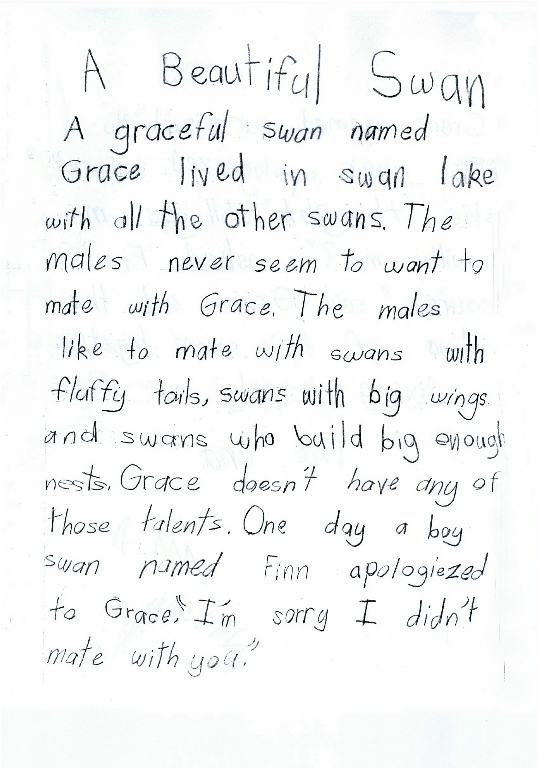 A Beautiful Swan
A graceful swan named
Grace lived in swan lake
with all the other swans. The
males never seem to want to
mate with Grace. The males
like to mate with swans with
fluffy tails, swans with big wings
and swans who build big enough
nests. Grace doesn't have any of
those talents. One day a boy
swan named Finn apologiezed
to Grace. "I'm sorry I didn't
mate with you."